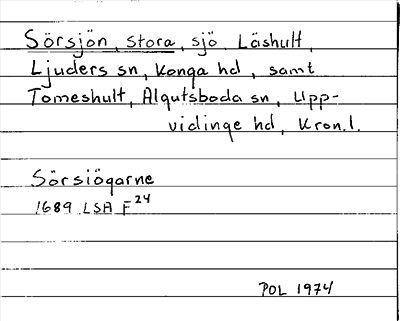 Sörsjön, stora, sjö Låshult,
Ljuders sn, Konga hd, samt
Tomeshult, Algutsboda sn, Upp-
vidinge hd, Kron.l.
Sörsiögarne
1689 LSA F24
POL 1974